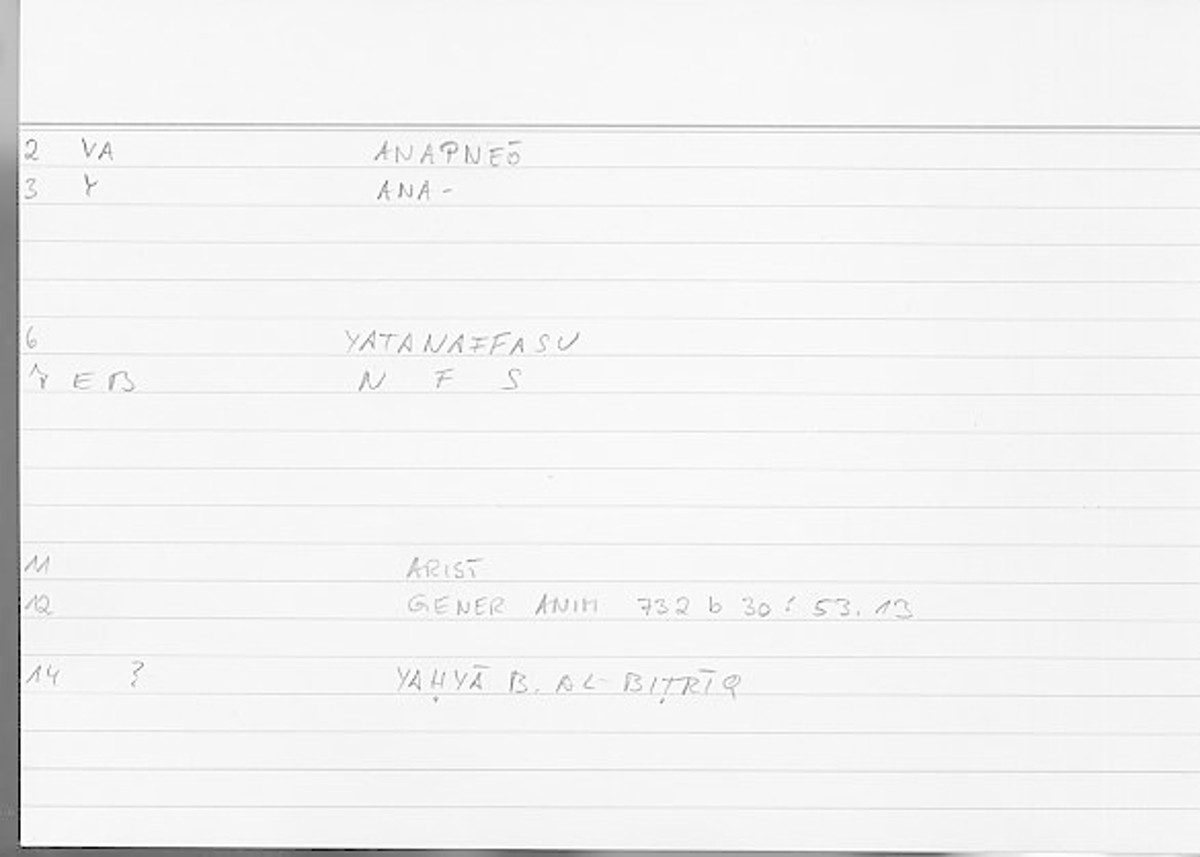 2 VA ANAPNEŌ
3 Y ANA-
6 YATANAFFASU
7 E B N F S
11 ARIST
12 GENER ANIM 732 b 30 : 53.13
14 YAḤYĀ B. AL-BIṬRĪQ